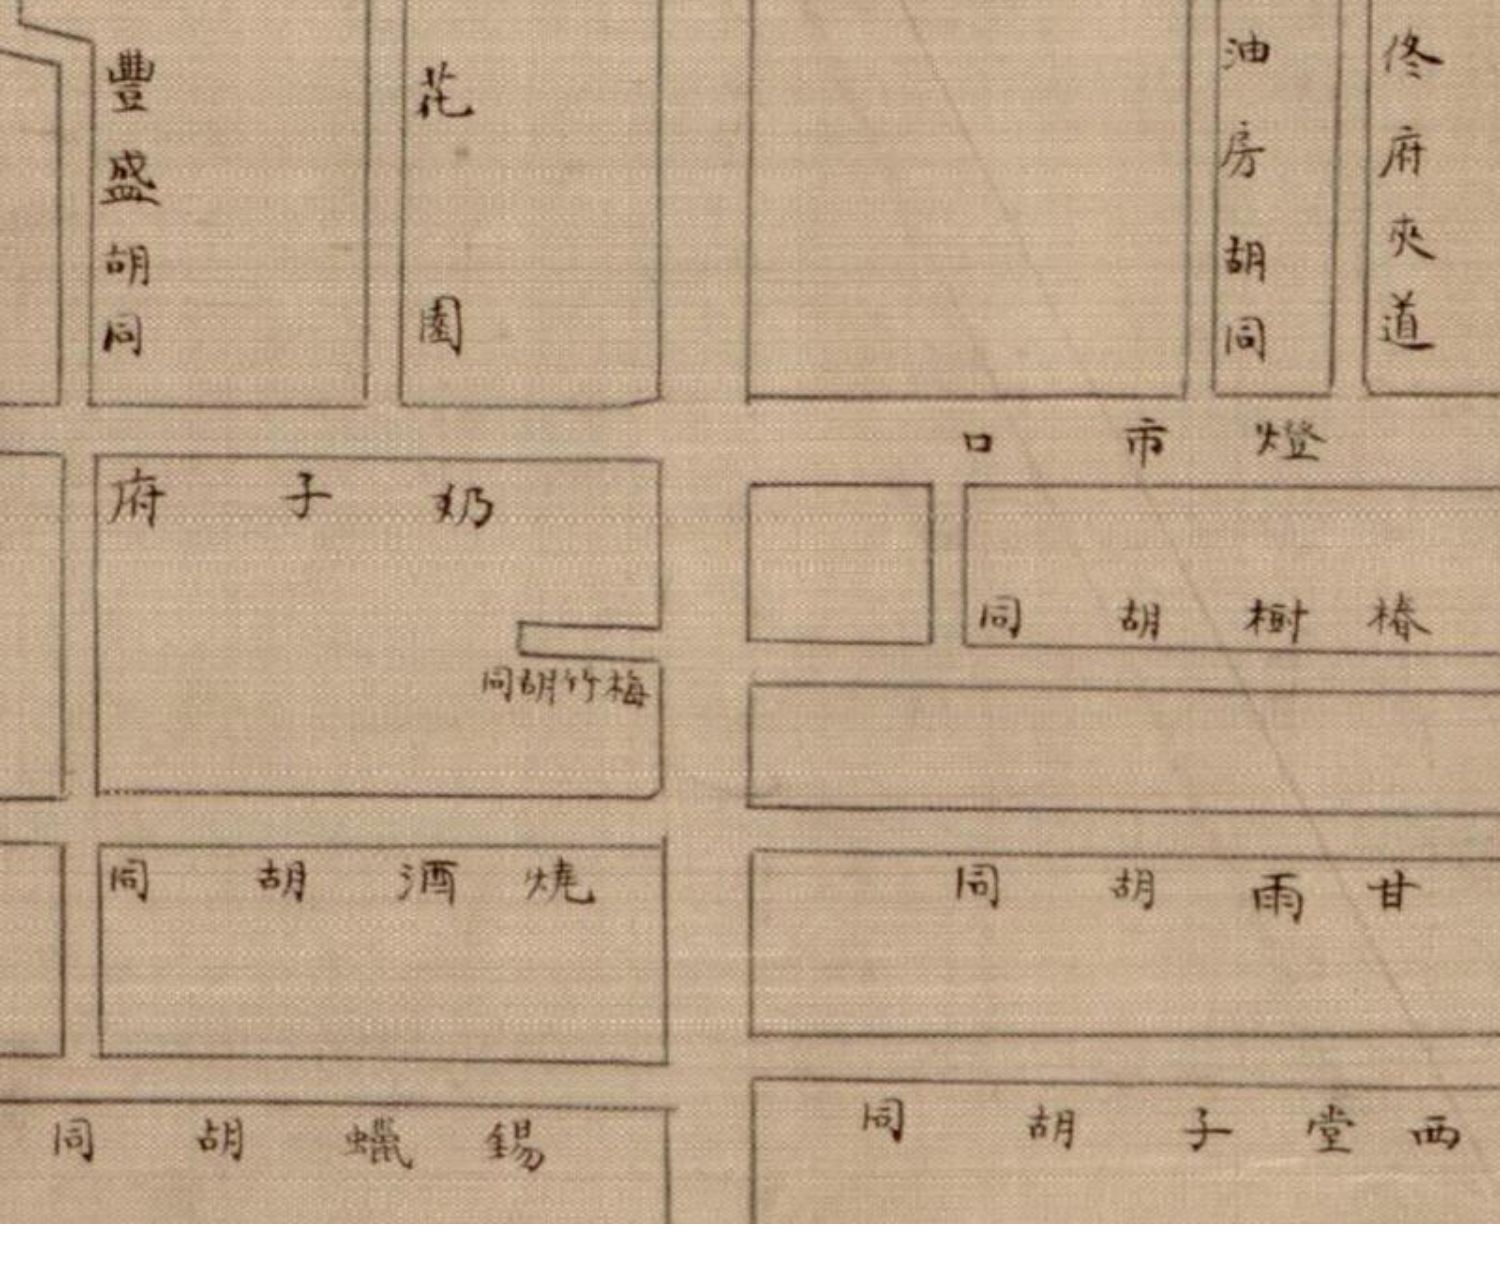 佟府夾道
油房胡同
花園
豐盛胡同
燈市口
奶子府
椿樹胡同
梅竹胡同
甘雨胡同
燒酒胡同
西堂子胡同
錫蠟胡同